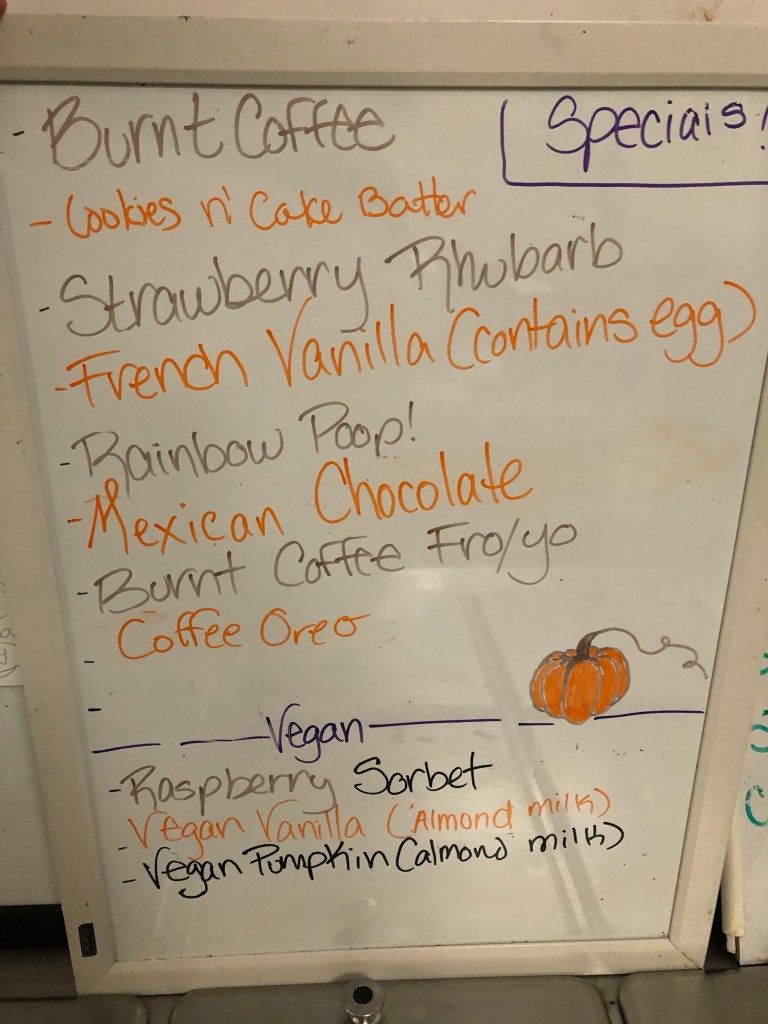 Specials!
- Burnt Coffee
- Cookies n' Cake Batter
- Strawberry Rhubarb
- French Vanilla (contains egg)
- Rainbow Poop!
- Mexican Chocolate
- Burnt Coffee Fro/yo
- Coffee Oreo
-
Vegan
- Raspberry Sorbet
- Vegan Vanilla (Almond milk)
- Vegan Pumpkin (almond milk)